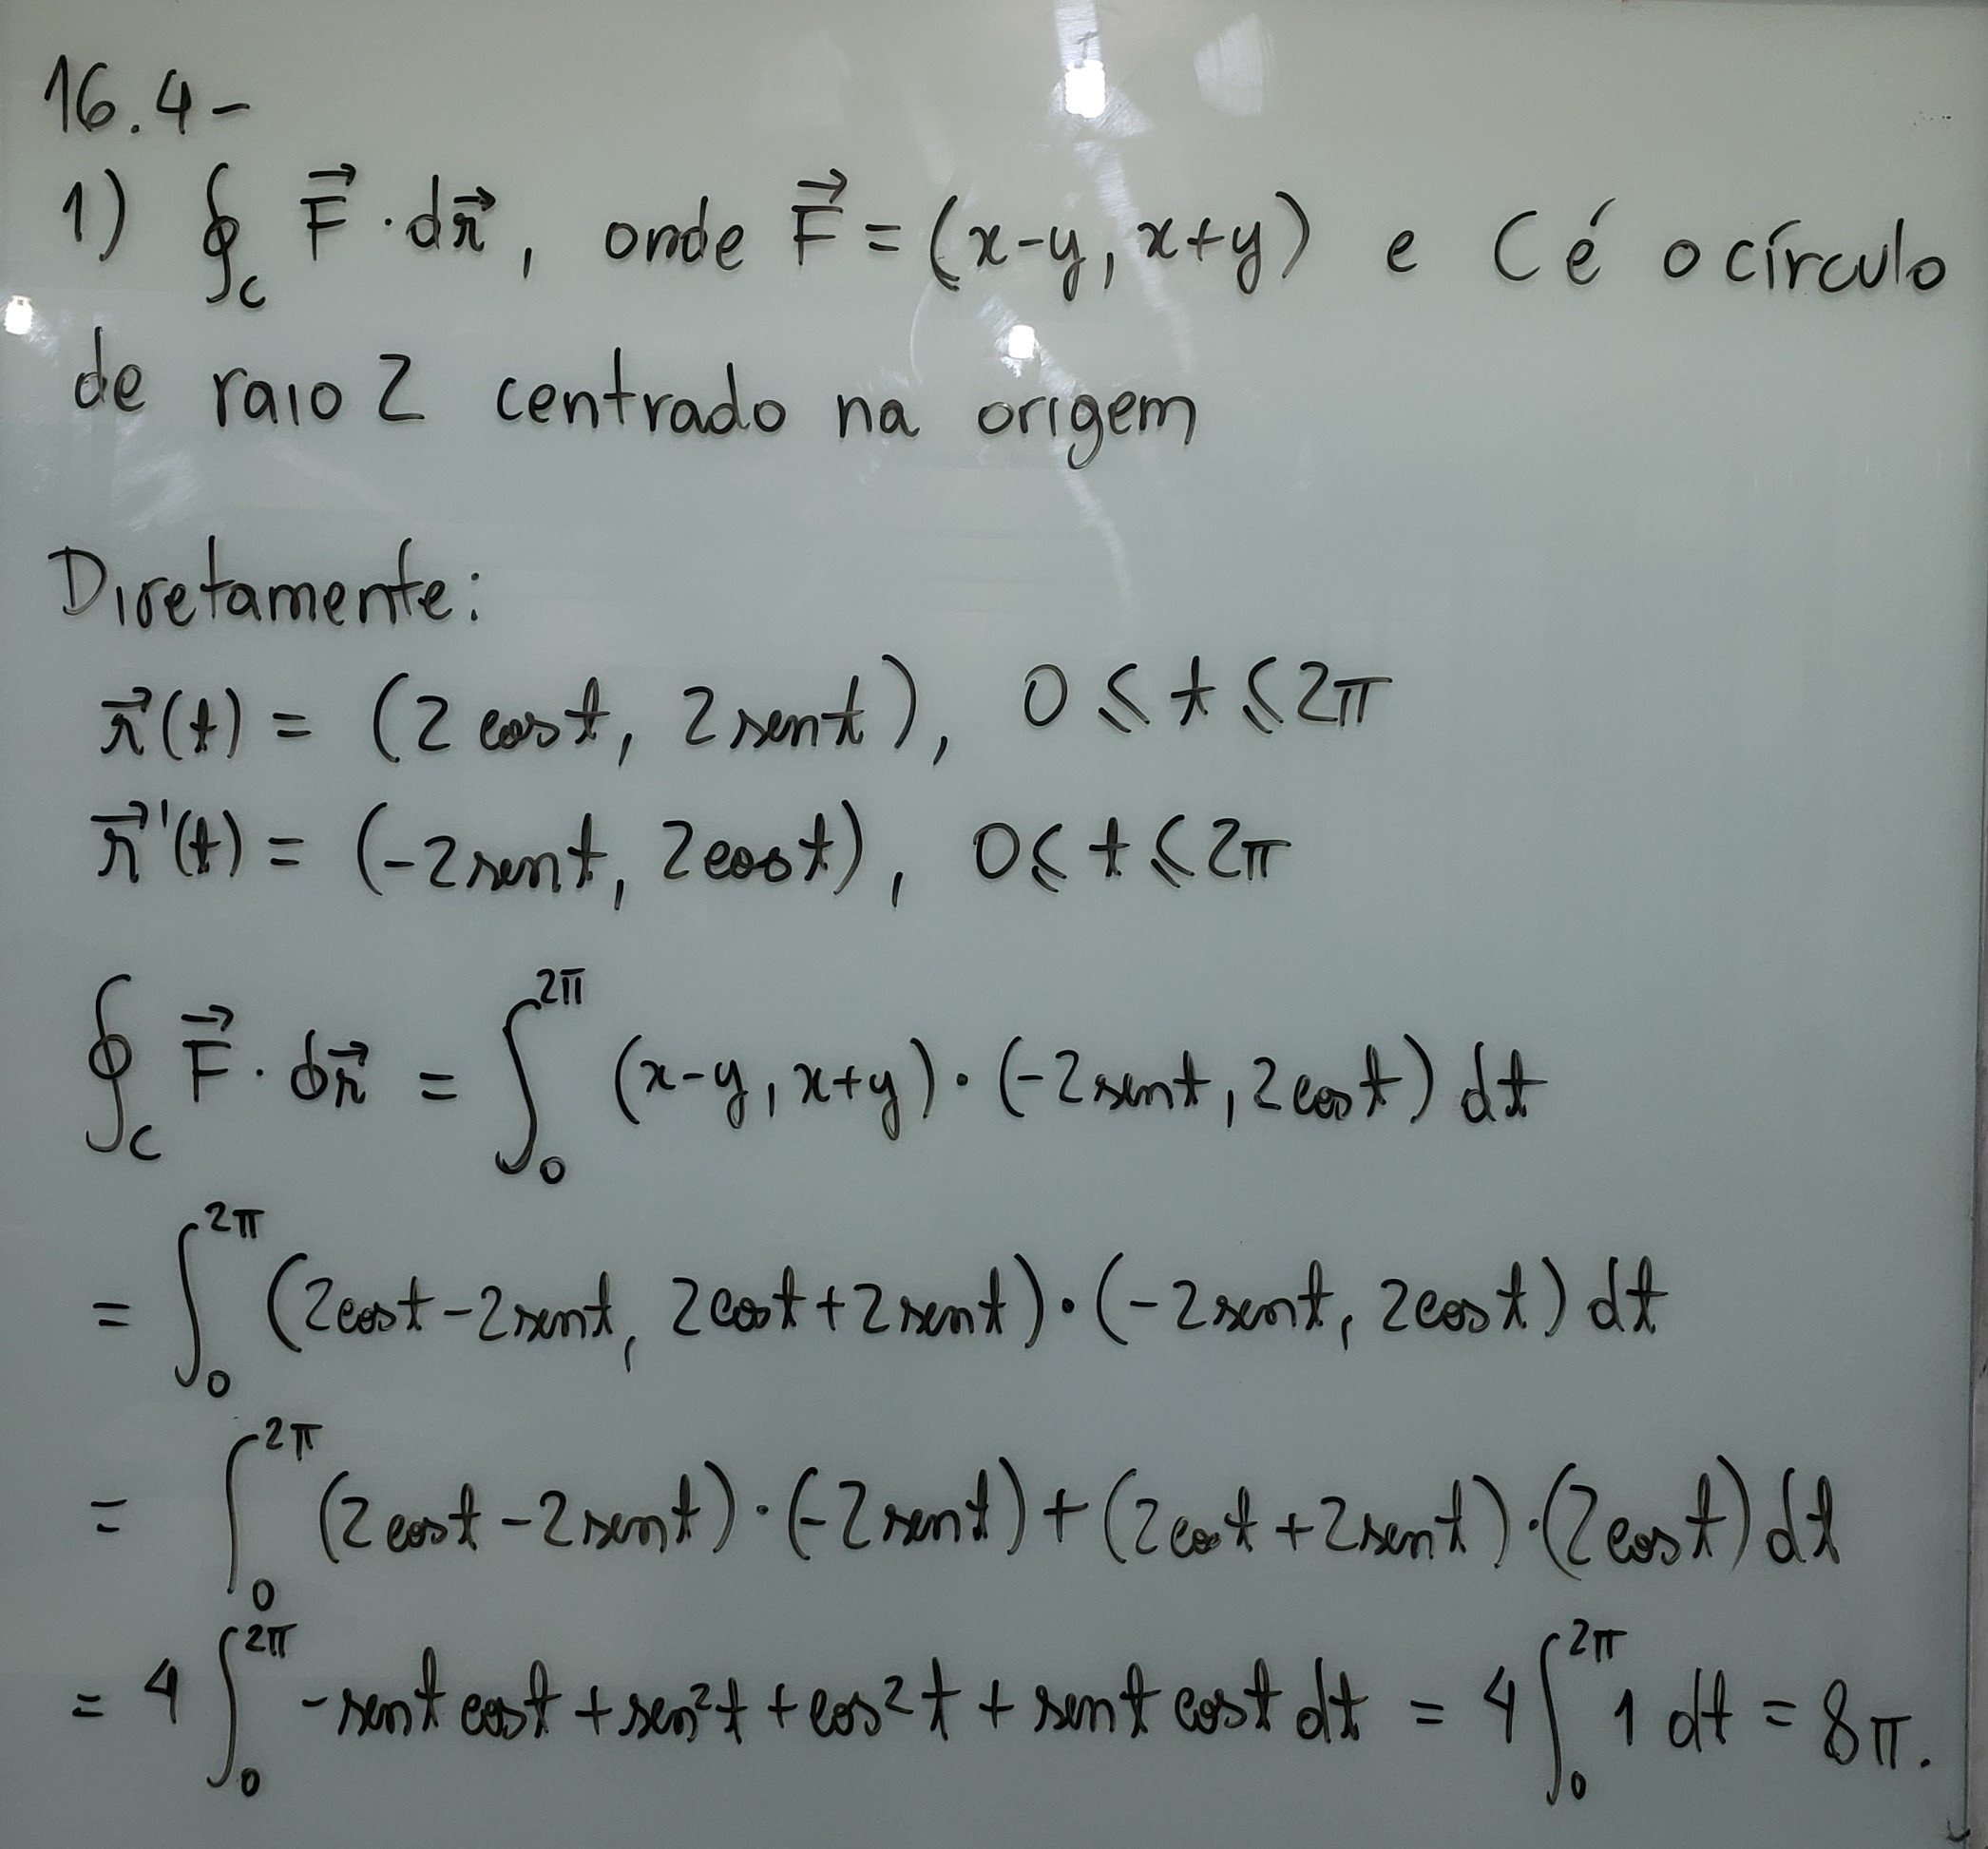 16.4-
1) ∮_C F⃗ · dr⃗, onde F⃗ = (x-y, x+y) e C é o círculo
de raio 2 centrado na origem
Diretamente:
r⃗(t) = (2 cos t, 2 sen t), 0 ⩽ t ⩽ 2π
r⃗'(t) = (-2 sen t, 2 cos t), 0 ⩽ t ⩽ 2π
∮_C F⃗ · dr⃗ = ∫_0^{2π} (x-y, x+y) · (-2 sen t, 2 cos t) dt
= ∫_0^{2π} (2 cos t - 2 sen t, 2 cos t + 2 sen t) · (-2 sen t, 2 cos t) dt
= ∫_0^{2π} (2 cos t - 2 sen t) · (-2 sen t) + (2 cos t + 2 sen t) · (2 cos t) dt
= 4 ∫_0^{2π} - sen t cos t + sen² t + cos² t + sen t cos t dt = 4 ∫_0^{2π} 1 dt = 8π.